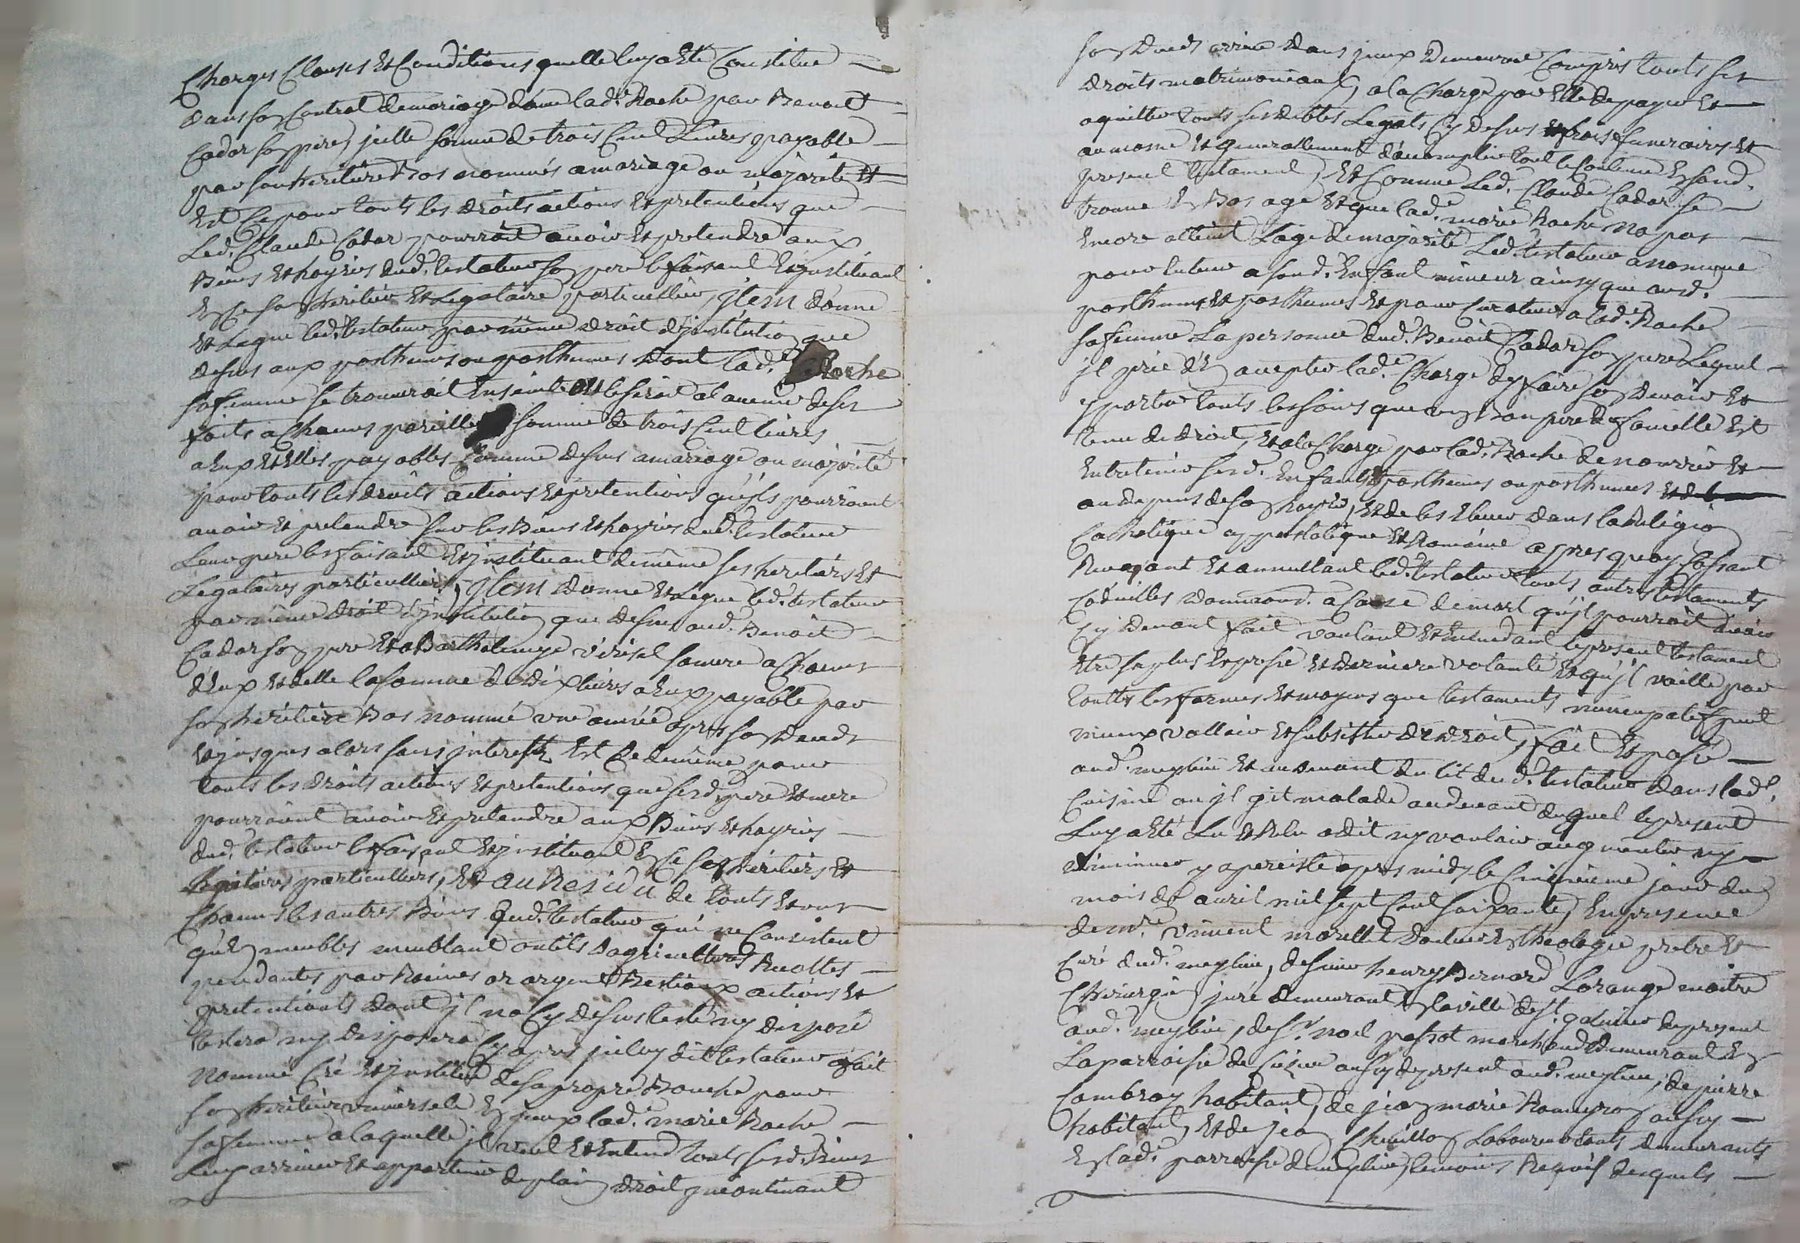 Charges Clauses Et Conditions quelle luy a Eté Constitué
dans son Contrat de mariage d'avec lad.e Rache par Benoit
Cadar son pere, jcelle somme de trois Cent Livres payable
par son heritiere Bas nommée a mariage ou majorité Et
Est Ce pour touts les droits actions Et pretentions que
Led. Claude Cadar pourroit avoir Et pretendre aux
Biens Et hoyries dud. testateur son pere le faisant Et jnstituant
En Ce son heritier Et Legataire particullier, jtem donne
Et Legue led. testateur par même droit d'jnstitution que
desus aux posthumes ou posthumes dont lad.e Rache
sa femme se trouveroit Enseinte ou le seroit a l'avenir de ses
faits a Chacuns pareille somme de trois Cent livres
a Eux Et Elles payables Comme desus a mariage ou majorité
pour touts les droits actions Et pretentions qu'jls pourroient
avoir Et pretendre sur les Biens Et hoyries dud. testateur
Leur pere les faisant Et jnstituant de même ses heritiers Et
Legataires particulliers, jtem donne Et Legue led. testateur
par même droit d'jnstitution que desus aud. Benoit
Cadar son pere Et a Barthelemye virisel sa mere a Chacun
d'Eux Et d'elle la somme de dix livres a Eux payable par
son héritière Bas nommé une année après son deceds
Et jusques alors sans jnterests Est Ce de même pour
touts les droits actions Et pretentions que sesd. pere Et mere
pourroient avoir Et pretendre aux Biens Et hoyries
dud. testateur les faisant Et jnstituant En Ce ses heritiers Et
Legataires particulliers, Et au Residu de touts Et uns
Chacuns les autres Biens dud. testateur qui ne Consistent
qu'En meubles meublant outils d'agriculture Recoltes
pendantes par Racines or argent Bestiaux actions Et
pretentions dont jl n'a Cy desus testé ny disposé
testera ny disposera Cy apres jceluy dit testateur a fait
nommé Créé Et jnstitué de sa propre Bouche pour
son heritiere universelle En jceux lad.e marie Rache
sa femme a laquelle jl veut Et Entend touts sesd. Biens
luy arriver Et appartenir de plain droit jncontinant
son deceds arrivé dans jceux demeurant Compris touts ses
droits matrimoniaux, a la Charge par Elle de payer Et
aquitter touts ses debtes Legats Cy desus Et frais funeraires Et
aumosne Et generallement d'accomplir tout le Contenu En son d.
present testament, Et Comme Led. Claude Cadar se
trouve En Bas age Et que lad.e marie Rache n'a pas
Encore atteint L'age de majorité Led. testateur a nommé
pour tuteur a sond. Enfant mineur ainsy que aud.
posthumes Et posthumes Et pour Curateur a lad.e Rache
sa femme La personne dud. Benoit Cadar son pere Lequel
jl prie d'En accepter lad.e Charge d'y faire son devoir Et
apporter touts les soins que un Bon pere de famille Est
tenu de droit, Et a la Charge par lad.e Rache de nourrir Et
Entretenir sesd. Enfants posthumes ou posthumes
au depens de son hoyrie, Et de les Elever dans la Religion
Catholique appostolique Et Romaine apres quoy Cassant
Revoquant Et annullant led. testateur touts autres testaments
Codicilles donnaons. a Cause de mort qu'jl pourroit avoir
Cy devant fait voulant Et Entendant le present testament
Etre sa plus Expresse Et derniere volonté Et qu'jl vaille par
touttes les formes Et moyens que testaments nuncupatif peut
mieux valloir Et subsister de droit, fait Et passé
aud. meylieu Et au devant du lit dud. testateur dans lad.e
Cuisine ou jl git malade au devant duquel le present
Luy a Eté Lu Et Relu a dit ny vouloir augmenter ny
diminuer y a persisté apres midy le Cinquieme jour du
mois de avril mil sept Cent soixante, En presence
de m.re vincent morellet docteur En theologie prebre Et
Curé dud. meylieu, de sieur henry Bernard Lorange maitre
Chirurgien juré demeurant En la ville de s.t galmier de present
aud. meylieu, de s.r noel passot marchand demeurant En
La parroisse de aussy de present aud. meylieu, de pierre
Combroy habitant, de jean marie Romeyron aussy
habitant, Et de jean Laboureur touts demeurants
En lad.e parroisse de meylieu, temoins Requis desquels